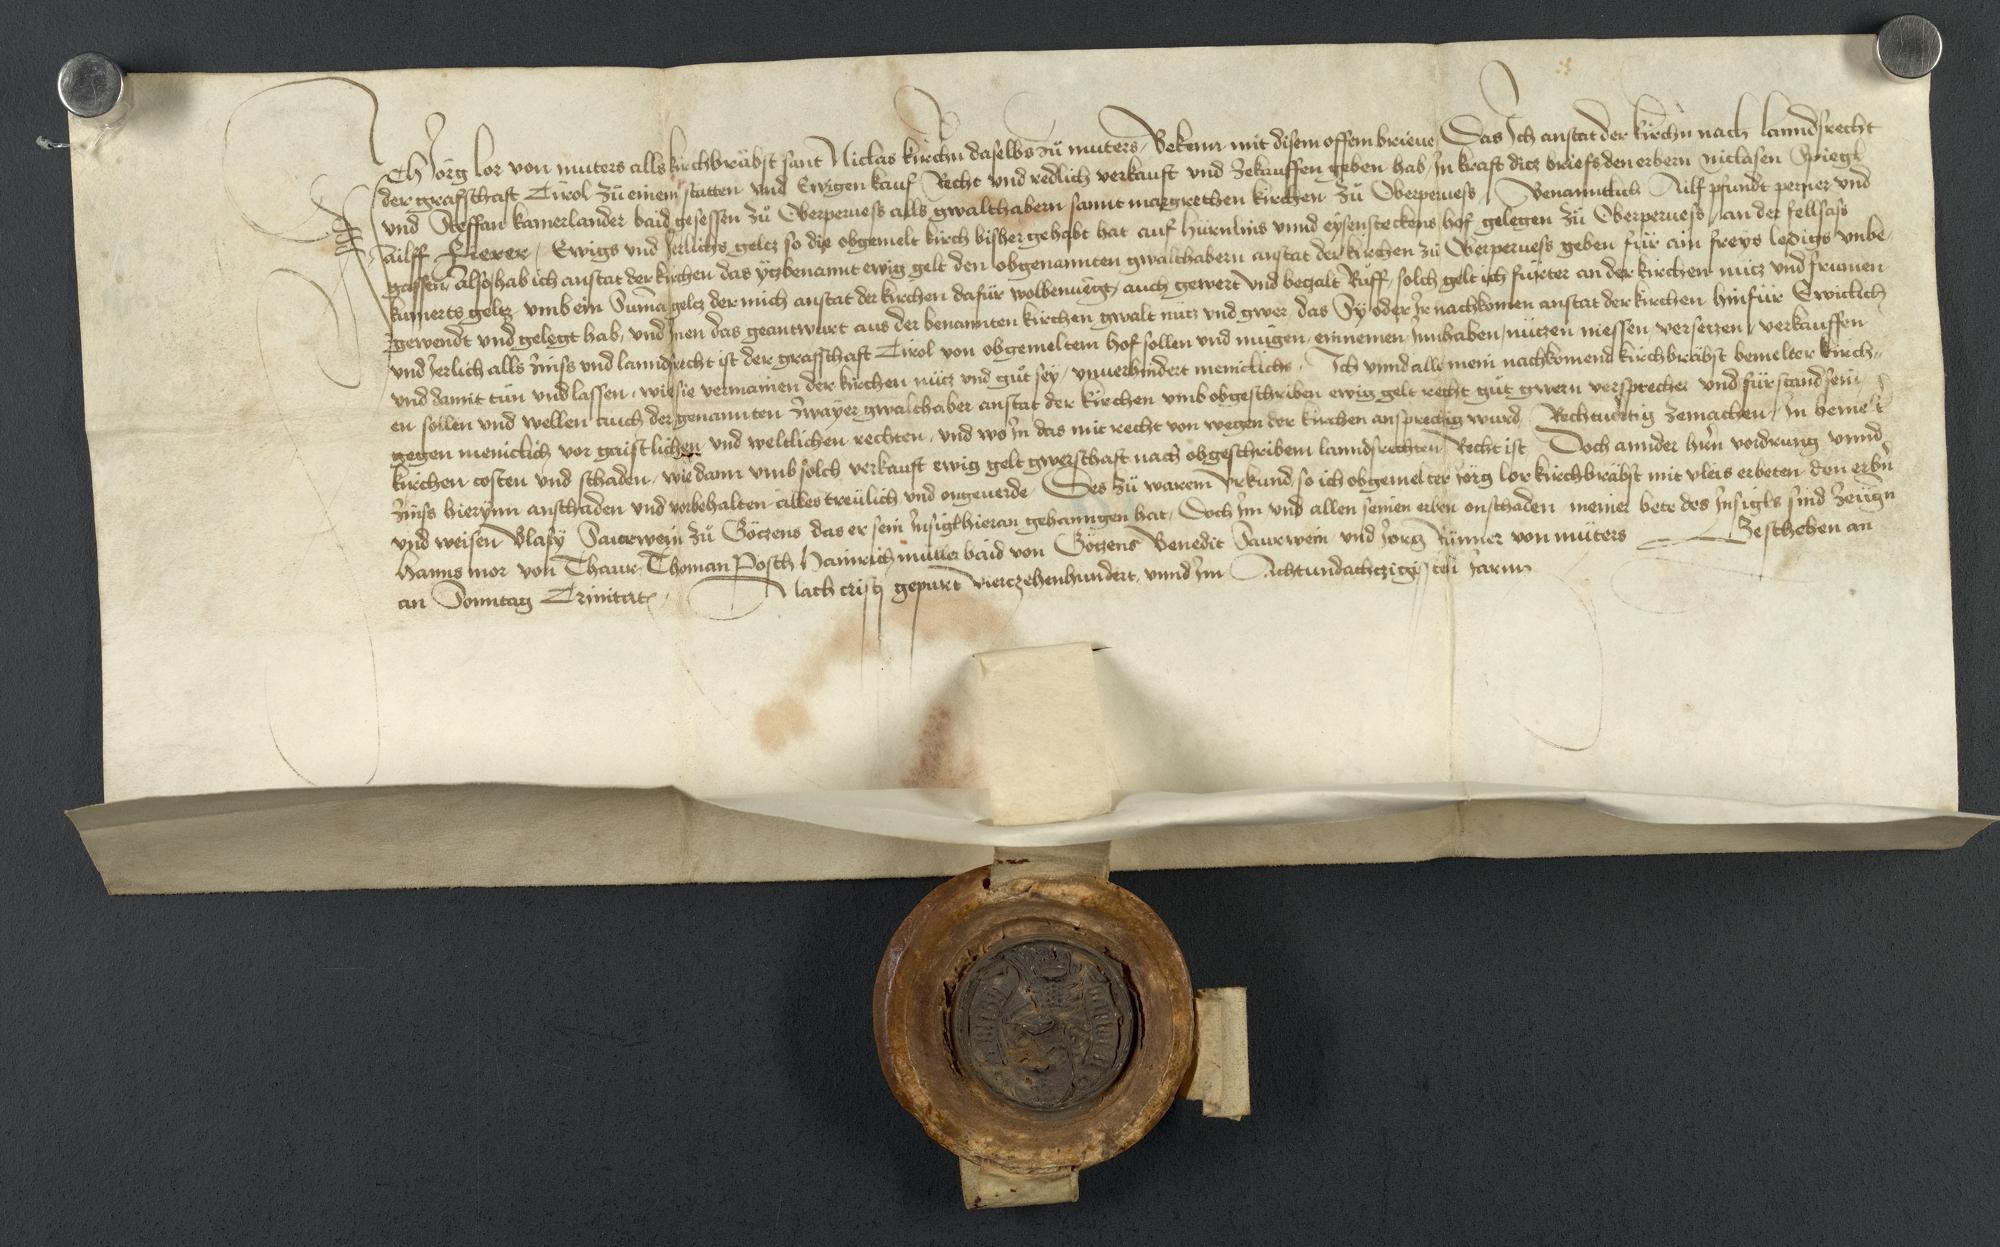 Ich Jörg lor von muters alls kirchbräbst sant Niclas kirchn daselbs zu muters, Bekenn mit disem offem brieue Das Ich anstat der kirchn nach lanndsrecht
der grafschaft Tirol zu einem statten und Ewigen kauf Recht und redlich verkauft und zekauffen geben hab In kraft dicz briefs den erbern niclasen Spiegl
und Steffan kamerlander baid gesessen zu Oberperuess alls gwalthabern sannt margrethen kirchen zu Oberperuess Benanntlich Ailf pfundt perner und
ailff Fierer, Ewigs und Jerlichs gelcz so die obgemelt kirch bisher gehabt hat auf hürnlins unnd eysensteckens hof gelegen zu Oberperuess an der fellsass
gassen Also hab ich anstat der kirchen das yczbenannt ewig gelt den obgenannten gwalthabern anstat der kirchen zu Oberperuess geben für ain freys ledigs unbe-
kumerts geltz umb ein Suma gelcz der mich anstat der kirchen dafür wolbenuegt, auch gewert und beczalt Rüff, solch gelt ich fürter an der kirchen nücz und frumen
gewendt und gelegt hab, und Jnen das geantwurt aus der benannten kirchen gwalt nücz und gwer, das Sy oder Ir nachkomen anstat der kirchen hinfür Ewiclich
und Jerlich alls zinss und lanndsrecht ist der grafschaft Tirol von obgemeltem hof sollen und mugen, einnemen Innhaben nüczen niessen versetzen verkauffen
und damit tun und lassen, wie sie vermainen der kirchen nücz und gut sey, unuerhindert menicklichs. Ich unnd alle mein nachkomend kirchbräbst bemelter kirch-
en sollen und wellen auch der genannten zwayer gwalthaber anstat der kirchen umb obgeschriben ewig gelt recht gut gwern versprecher und fürstand sein
gegen meniclich vor gaistlichen und weltlichen rechten, und wo In das mit recht von wegen der kirchen ansprechig wurd Rechtuertig zemachen, In bemelt
kirchen costen und schaden, wie dann umb solch verkauft ewig gelt gwerschaft nach obgeschribem lanndsrechten Recht ist Doch annder hern vordrung unnd
zinss hierynn anschaden und vorbehalten alles treulich und ongeuerde Des zu warem urkund so ich obgemelter Jörg lor kirchbräbst mit vleis erbeten den erbn
und weisen Blasy Saurwein zu Götzens das er sein Insigl hieran gehanngen hat, Doch Im und allen seinen erben onschaden meiner bete des Insigls sind zeügn
Hanns mor von Thaur Thoman Posch Hainrich muller baid von Götzens Benedit Saurwein und Jorg von muters Beschehen an
an Sonntag Trinitatis, Nach cristi gepurt vierczehenhundert, unnd Im Achtundachczigisten Jarnn